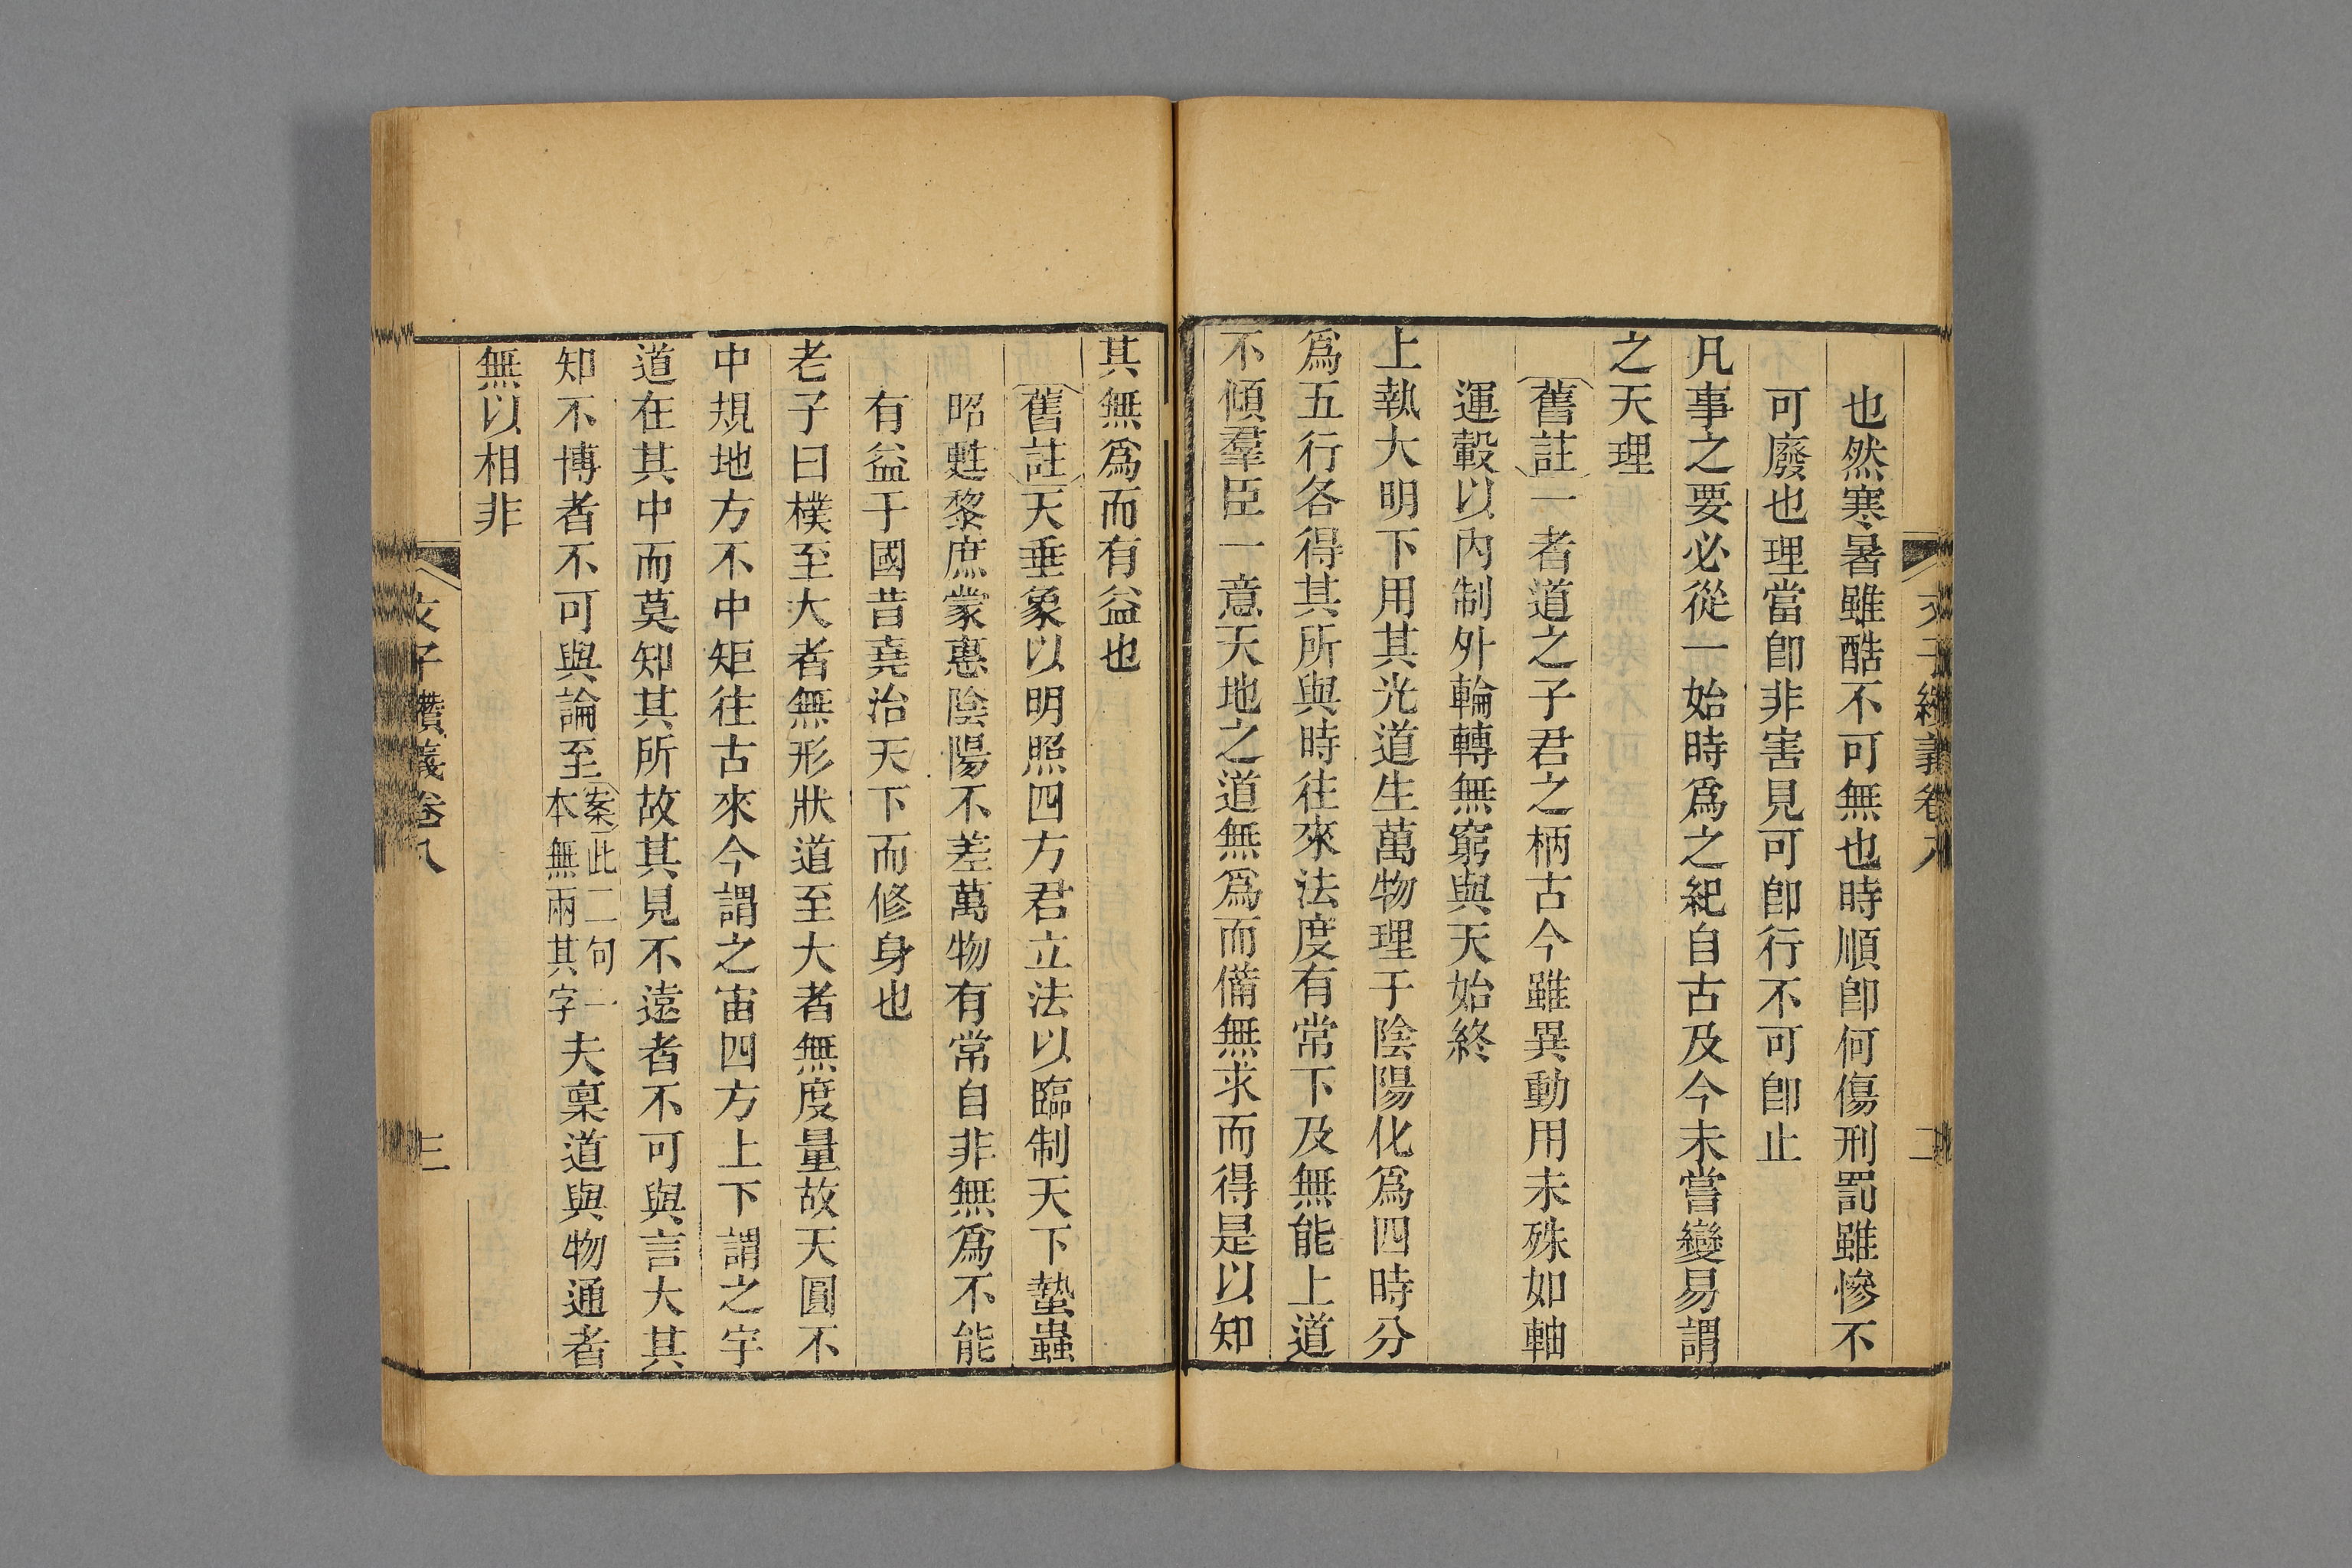 文子纘義卷八
二
也然寒暑雖酷不可無也時順卽何傷刑罰雖慘不
可廢也理當卽非害見可卽行不可卽止
凡事之要必從一始時爲之紀自古及今未嘗變易謂
之天理
舊註一者道之子君之柄古今雖異動用未殊如軸
運轂以內制外輪轉無窮與天始終
上執大明下用其光道生萬物理于陰陽化爲四時分
爲五行各得其所與時往來法度有常下及無能上道
不傾羣臣一意天地之道無爲而備無求而得是以知
其無爲而有益也
舊註天垂象以明照四方君立法以臨制天下蟄蟲
昭甦黎庶蒙惠陰陽不差萬物有常自非無爲不能
有益于國昔堯治天下而修身也
老子曰樸至大者無形狀道至大者無度量故天圓不
中規地方不中矩往古來今謂之宙四方上下謂之宇
道在其中而莫知其所故其見不遠者不可與言大其
知不博者不可與論至案此二句一本無兩其字夫稟道與物通者
無以相非
文子纘義卷八
三